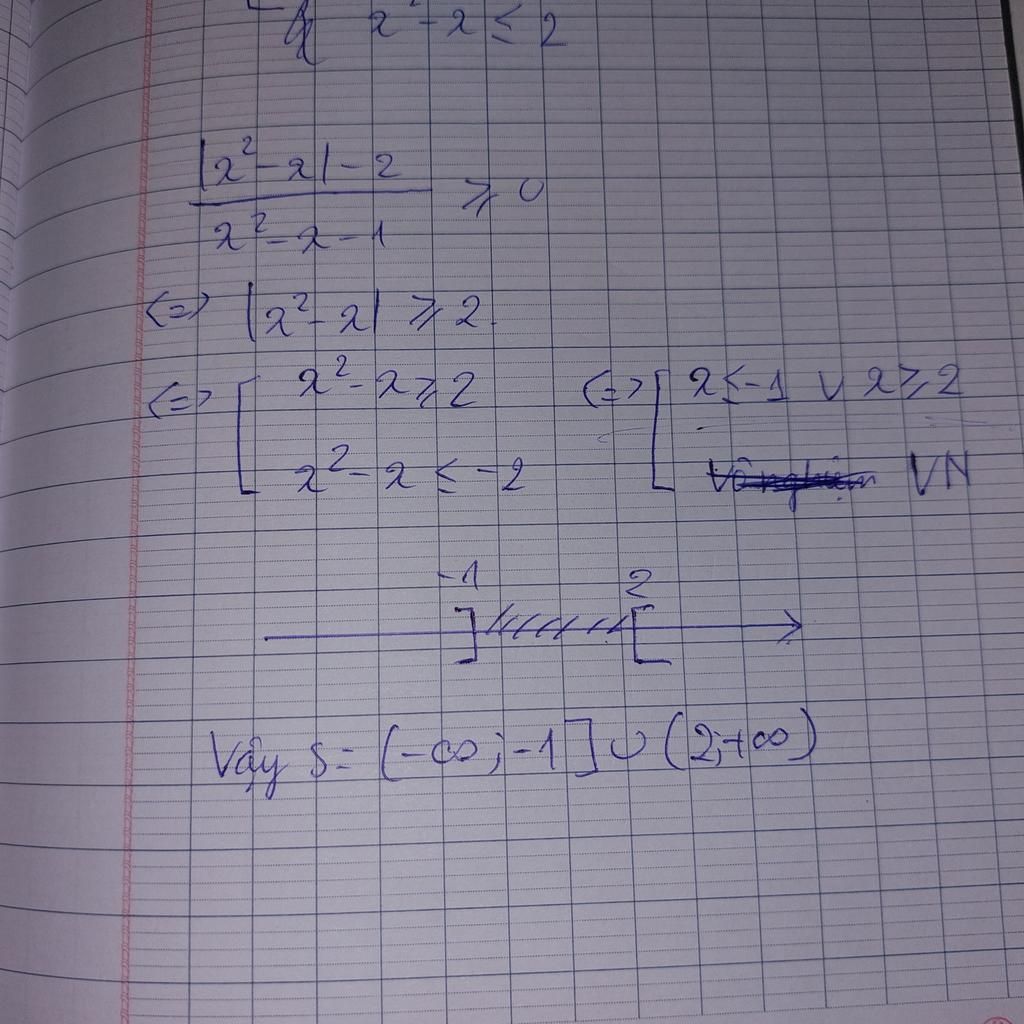 x² - x ≤ 2
|x² - x| - 2
x² - x - 1
≥ 0
<=> |x² - x| ≥ 2
<=> [ x² - x ≥ 2 <=> [ x ≤ -1 ∪ x ≥ 2
x² - x ≤ -2 Vô nghiệm VN
-1 2
Vậy S = (-∞; -1] ∪ (2; +∞)